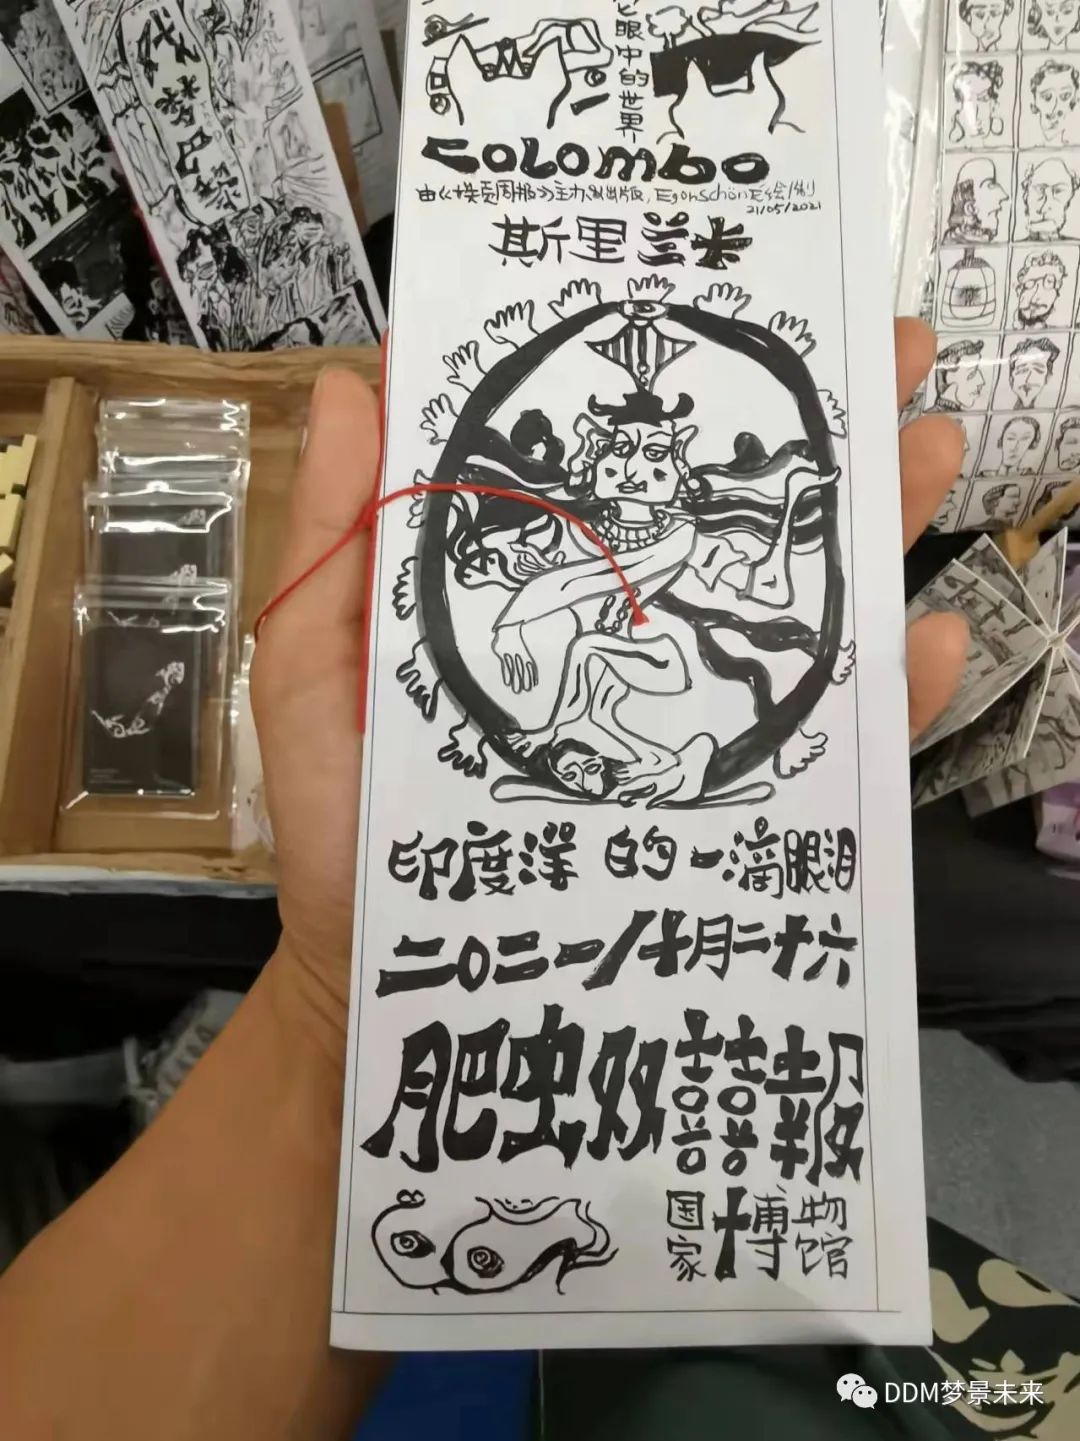 代梦巴黎
眼中的世界
COLOMBO
由《模贡周报》主办&出版, EgonSchönE绘/制
21/05/2021
斯里兰卡
印度洋 的一滴眼泪
二〇二一/十月二十六
肥虫双囍報
国家博物馆
DDM梦景未来